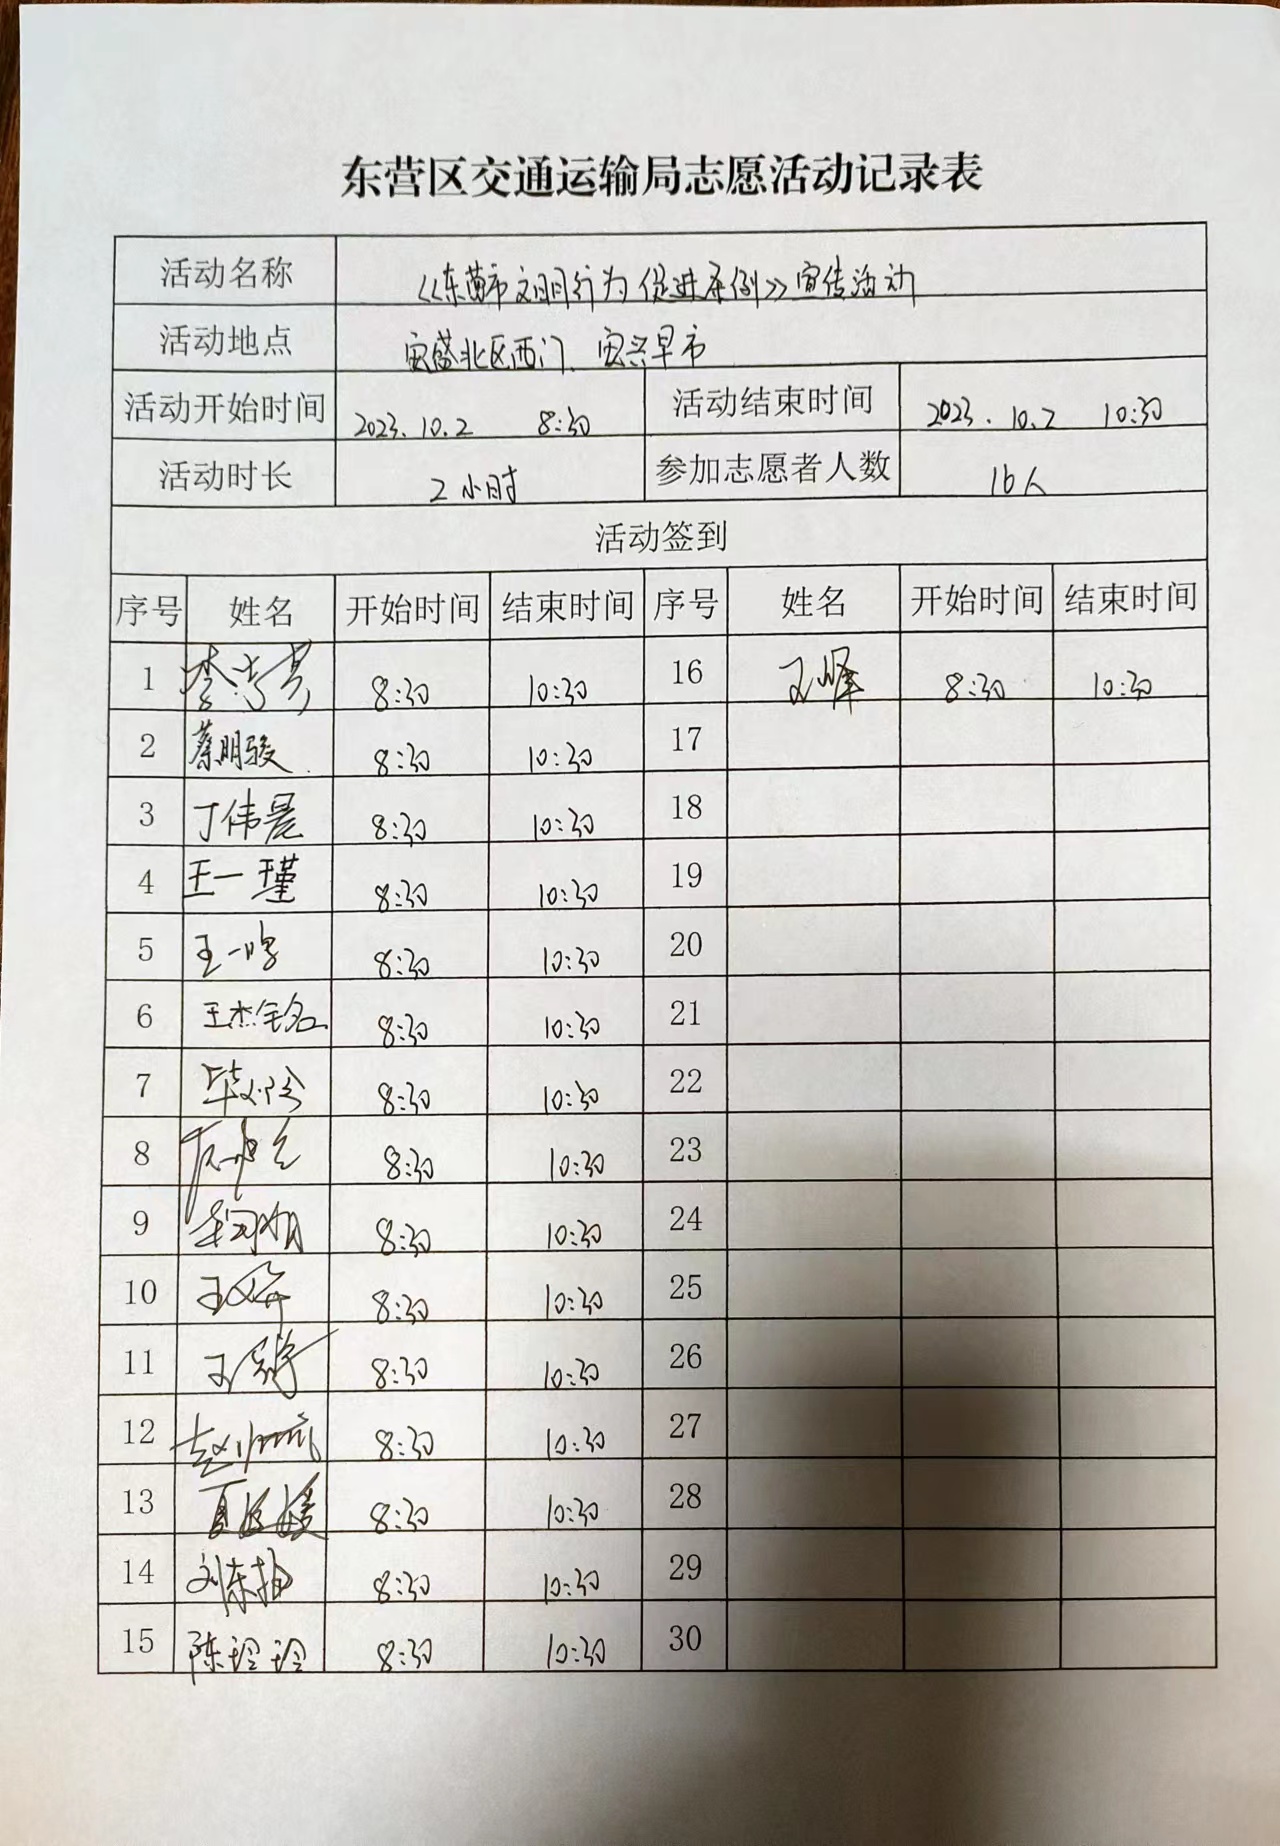 东营区交通运输局志愿活动记录表
活动名称 《东营市文明行为促进条例》宣传活动
活动地点 安盛北区西门、安兴早市
活动开始时间 2023.10.2 8:30 活动结束时间 2023.10.2 10:30
活动时长 2小时 参加志愿者人数 16人
活动签到
序号 姓名 开始时间 结束时间 序号 姓名 开始时间 结束时间
1 8:30 10:30 16 王峰 8:30 10:30
2 蔡明骏 8:30 10:30 17
3 丁伟晨 8:30 10:30 18
4 王一瑾 8:30 10:30 19
5 王一 8:30 10:30 20
6 王杰铭 8:30 10:30 21
7 8:30 10:30 22
8 8:30 10:30 23
9 8:30 10:30 24
10 王 8:30 10:30 25
11 王 8:30 10:30 26
12 赵 8:30 10:30 27
13 夏 媛 8:30 10:30 28
14 刘东 8:30 10:30 29
15 陈玲玲 8:30 10:30 30